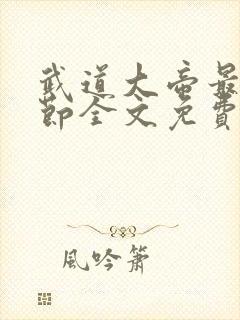 武道大帝最
節全文免費
風吟簫